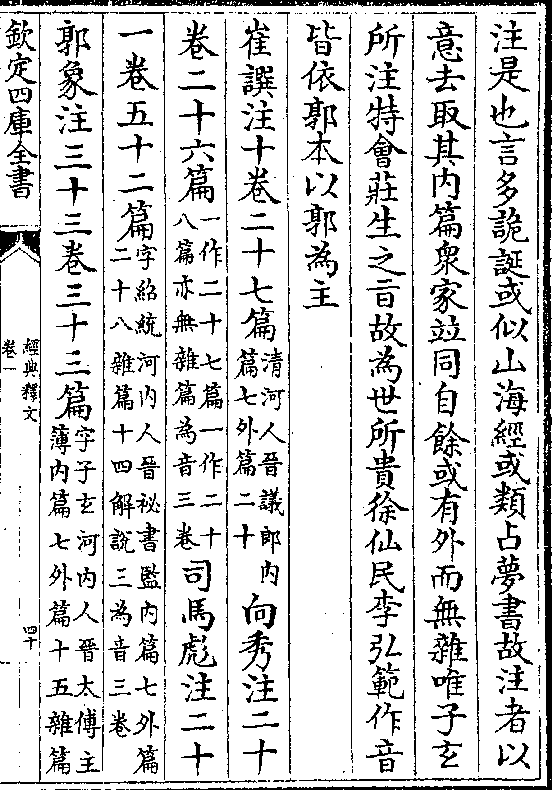 注是也言多詭誕或似山海經或類占夢書故注者以
意去取其内篇衆家竝同自餘或有外而無雜唯子玄
所注特會莊生之旨故為世所貴徐仙民李弘範作音
皆依郭本以郭為主
崔譔注十卷二十七篇清河人晉議郎内篇七外篇二十向秀注二十
卷二十六篇一作二十七篇一作二十八篇亦無雜篇為音三卷司馬彪注二十
一卷五十二篇字紹統河内人晉祕書監内篇七外篇二十八雜篇十四解說三為音三卷
郭象注三十三卷三十三篇字子玄河内人晉太傅主薄内篇七外篇十五雜篇
欽定四庫全書
經典釋文
卷一
四十